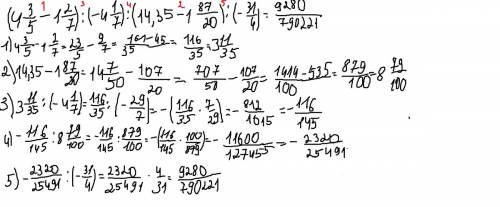 1 3 4 2 5
(4 3/5 - 1 2/7) : (-4 1/7) : (14,35 - 1 87/20) : (-31/4) = 9280/790221
1) 4 3/5 - 1 2/7 = 23/5 - 9/7 = (161-45)/35 = 116/35 = 3 11/35
2) 14,35 - 1 87/20 = 14 7/50 - 107/20 = 707/50 - 107/20 = (1414-535)/100 = 879/100 = 8 79/100
3) 3 11/35 : (-4 1/7) = 116/35 : (-29/7) = -(116/35 · 7/29) = -812/1015 = -116/145
4) -116/145 : 8 79/100 = -116/145 : 879/100 = -(116/145 · 100/879) = -11600/127455 = -2320/25491
5) -2320/25491 : (-31/4) = 2320/25491 · 4/31 = 9280/790221